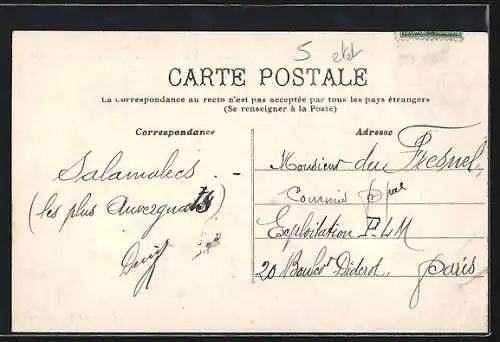 5
CARTE POSTALE
La Correspondance au recto n'est pas acceptée par tous les pays étrangers
(Se renseigner à la Poste)
Correspondance
Adresse
Salamalecs
(les plus Auvergnats)
Monsieur du Fresnel,
Commis ppal
Exploitation P.L.M
20 Boulev^r Diderot,
Paris